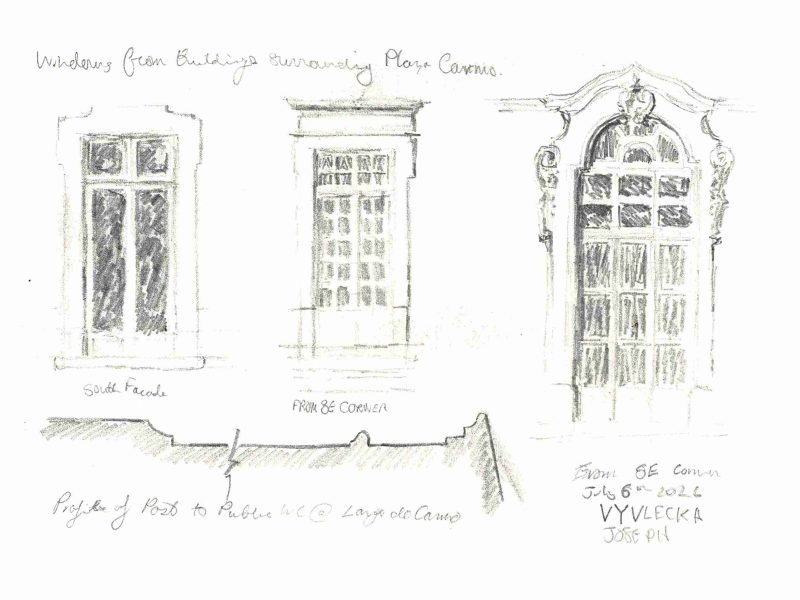 Windows from Buildings surrounding Plaza Carmo.
South Facade
FROM SE CORNER
Profile of Post to Public WC @ Largo do Carmo
From SE Corner
July 6th 2026
VYVLECKA
JOSEPH